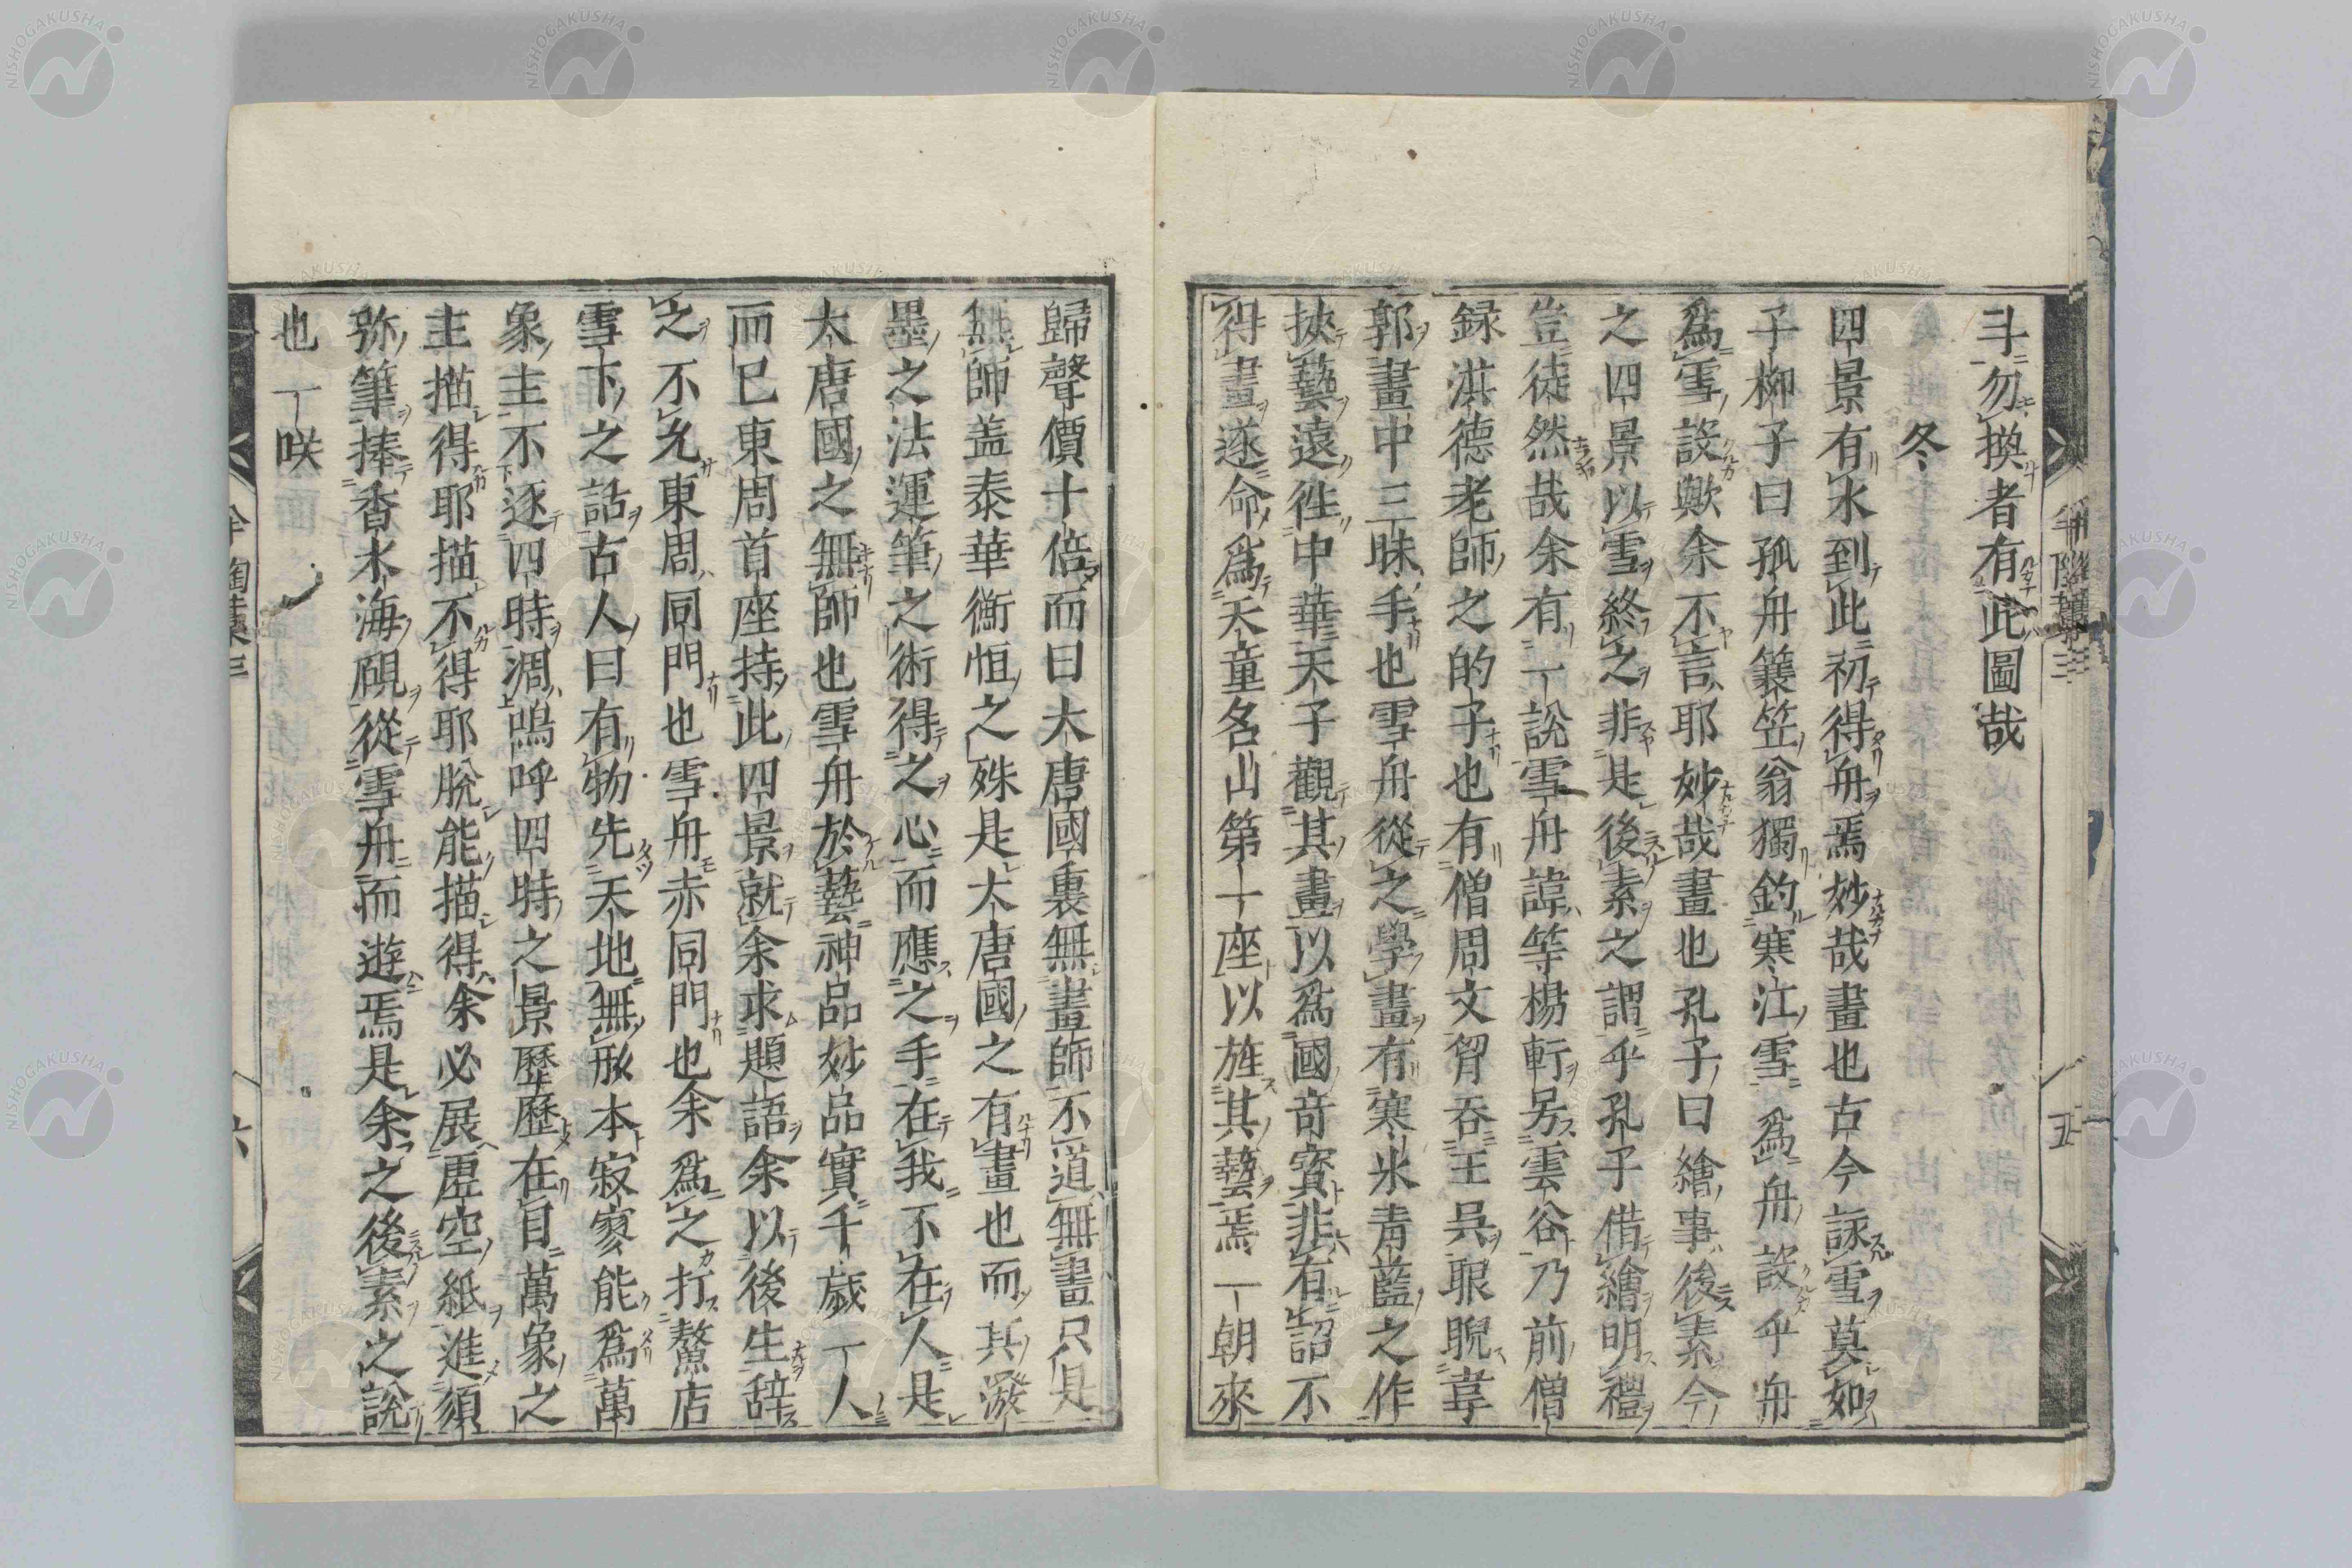 斗勿換者有此圖哉
冬
四景有水到此初得舟焉妙哉畫也古今詠雪莫如
子柳子曰孤舟簑笠翁獨釣寒江雪爲舟設乎舟
爲雪設歟余不言耶妙哉畫也孔子曰繪事後素今
之四景以雪終之非是後素之謂乎孔子借繪明禮
豈徒然哉余有一說雪舟諱等楊軒号雲谷乃前僧
録淇德老師之的子也有僧周文胷吞王吳眼睨韋
郭畫中三昧手也雪舟從之學畫有寒氷青藍之作
挾藝遠徃中華天子觀其畫以爲國竒寳非有詔不
得畫遂命爲天童名山第一座以旌其藝焉一朝來
歸聲價十倍而曰大唐國裏無畫師不道無畫只是
無師盖泰華衡恒之殊是大唐國之有畫也而其潑
墨之法運筆之術得之心而應之手在我不在人是
太唐國之無師也雪舟於藝神品妙品實千歲一人
而已東周首座持此四景就余求題語余以後生辞
之不允東周同門也雪舟亦同門也余爲之打鰲店
雪下之話古人曰有物先天地無形本寂寥能爲萬
象主不逐四時凋嗚呼四時之景歷歷在目萬象之
主描得耶描不得耶脫能描得余必展虛空紙進須
弥筆捧香水海硯從雪舟而遊焉是余之後素之說
也一咲
五
六
NISHOGAKUSHA